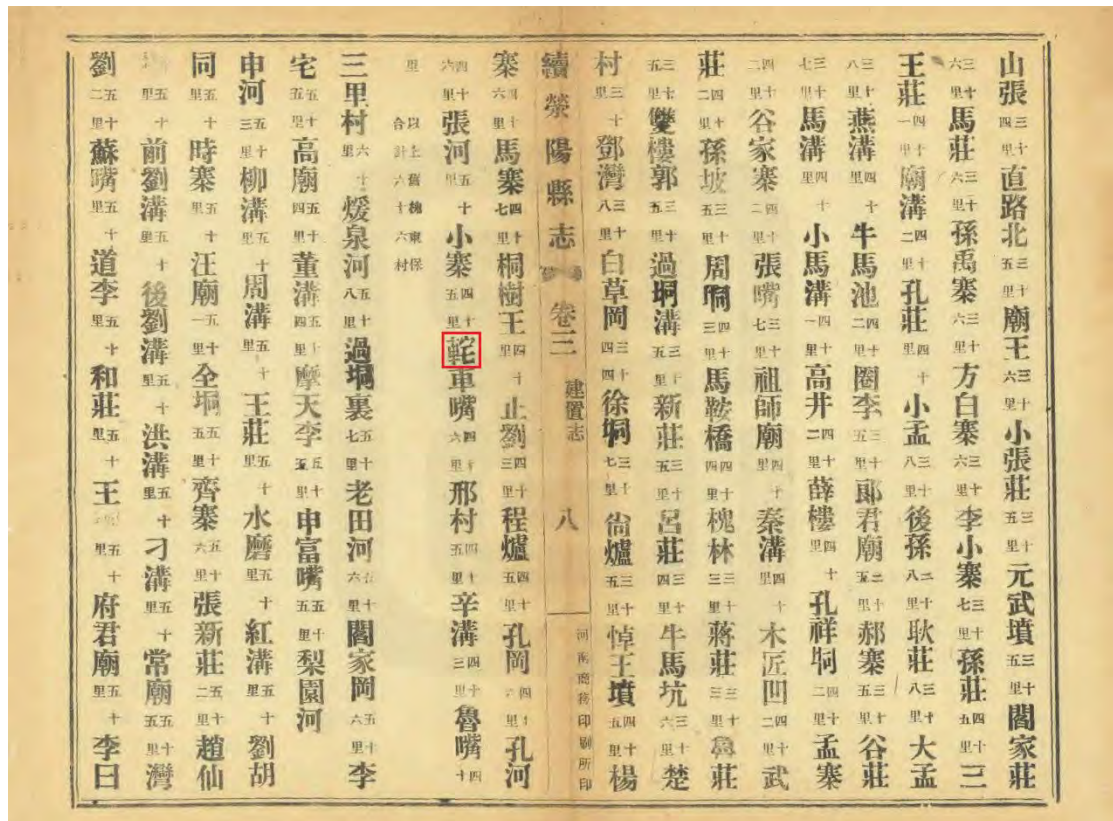 山張三十四里直路北三十五里廟王三十六里小張莊三十五里元武墳三十五里閻家莊
三十六里馬莊三十六里孫禹寨三十六里方白寨三十六里李小寨三十七里孫莊四十五里三
王莊四十一里廟溝四十二里孔莊四十里小孟三十八里後孫三十八里耿莊三十八里大孟
三十八里燕溝四十里牛馬池四十二里圈李三十五里郎君廟三十五里郝寨三十五里谷莊
三十七里馬溝四十里小馬溝四十一里高井四十二里薛樓四十里孔祥垌四十二里孟寨
四十二里谷家寨四十二里張嘴三十七里祖師廟四十里秦溝四十里木匠凹四十二里武
莊四十二里孫坡三十五里周垌四十三里馬鞍橋四十四里槐林三十三里蔣莊三十三里魯莊
三十五里雙樓郭三十五里過垌溝三十五里新莊三十五里呂莊三十四里牛馬坑三十六里楚
村三十里鄧灣三十八里白草岡三十四四徐垌三十七里尙爐三十五里悼王墳四十五里楊
續滎陽縣志 卷三 建置志 八 河南商務印刷所印
寨四十六里馬寨四十七里桐樹王四十里止劉四十三里程爐四十五里孔岡四十里孔河
四十六里張河五十里小寨四十五里軳車嘴四十六里邢村四十五里辛溝四十三里魯嘴四十
里 以上舊槐東保合計六十六村
三里村六十里煖泉河五十八里過垌裏五十七里老田河五十六里閻家岡五十六里李
宅五十五里高廟五十四里董溝五十四里摩天李五十五里申富嘴五十五里梨園河
申河五十三里柳溝五十里周溝五十里王莊五十里水磨五十里紅溝五十里劉胡
同五十里時寨五十里汪廟五十一里仝垌五十五里齊寨五十六里張新莊五十二里趙仙
五十里前劉溝五十里後劉溝五十里洪溝五十里刁溝五十里常廟五十五里灣
劉五十二里蘇嘴五十里道李五十里和莊五十里王五十里府君廟五十里李曰